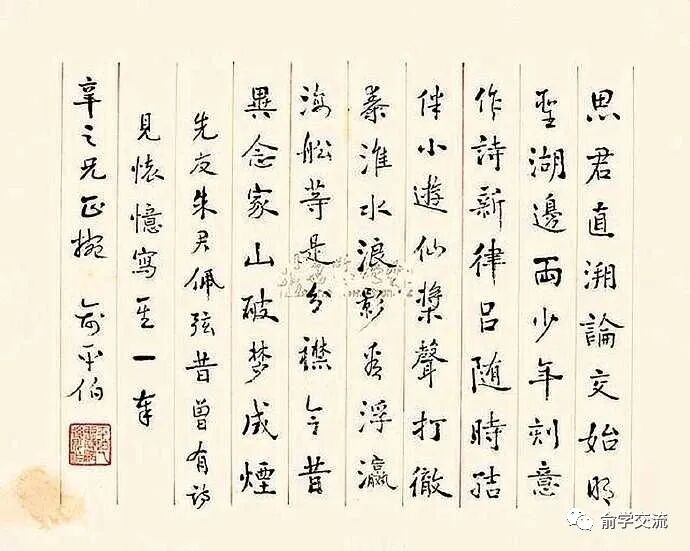 思君直溯論交始明
聖湖邊兩少年刻意
作詩新律吕随時結
伴小遊仙槳聲打徹
秦淮水浪影看浮瀛
海舩等是分襟今昔
異念家山破梦成煙
先友朱君佩弦昔曾有詩
見懷憶寫其一奉
辛之兄正捥 俞平伯
俞学交流